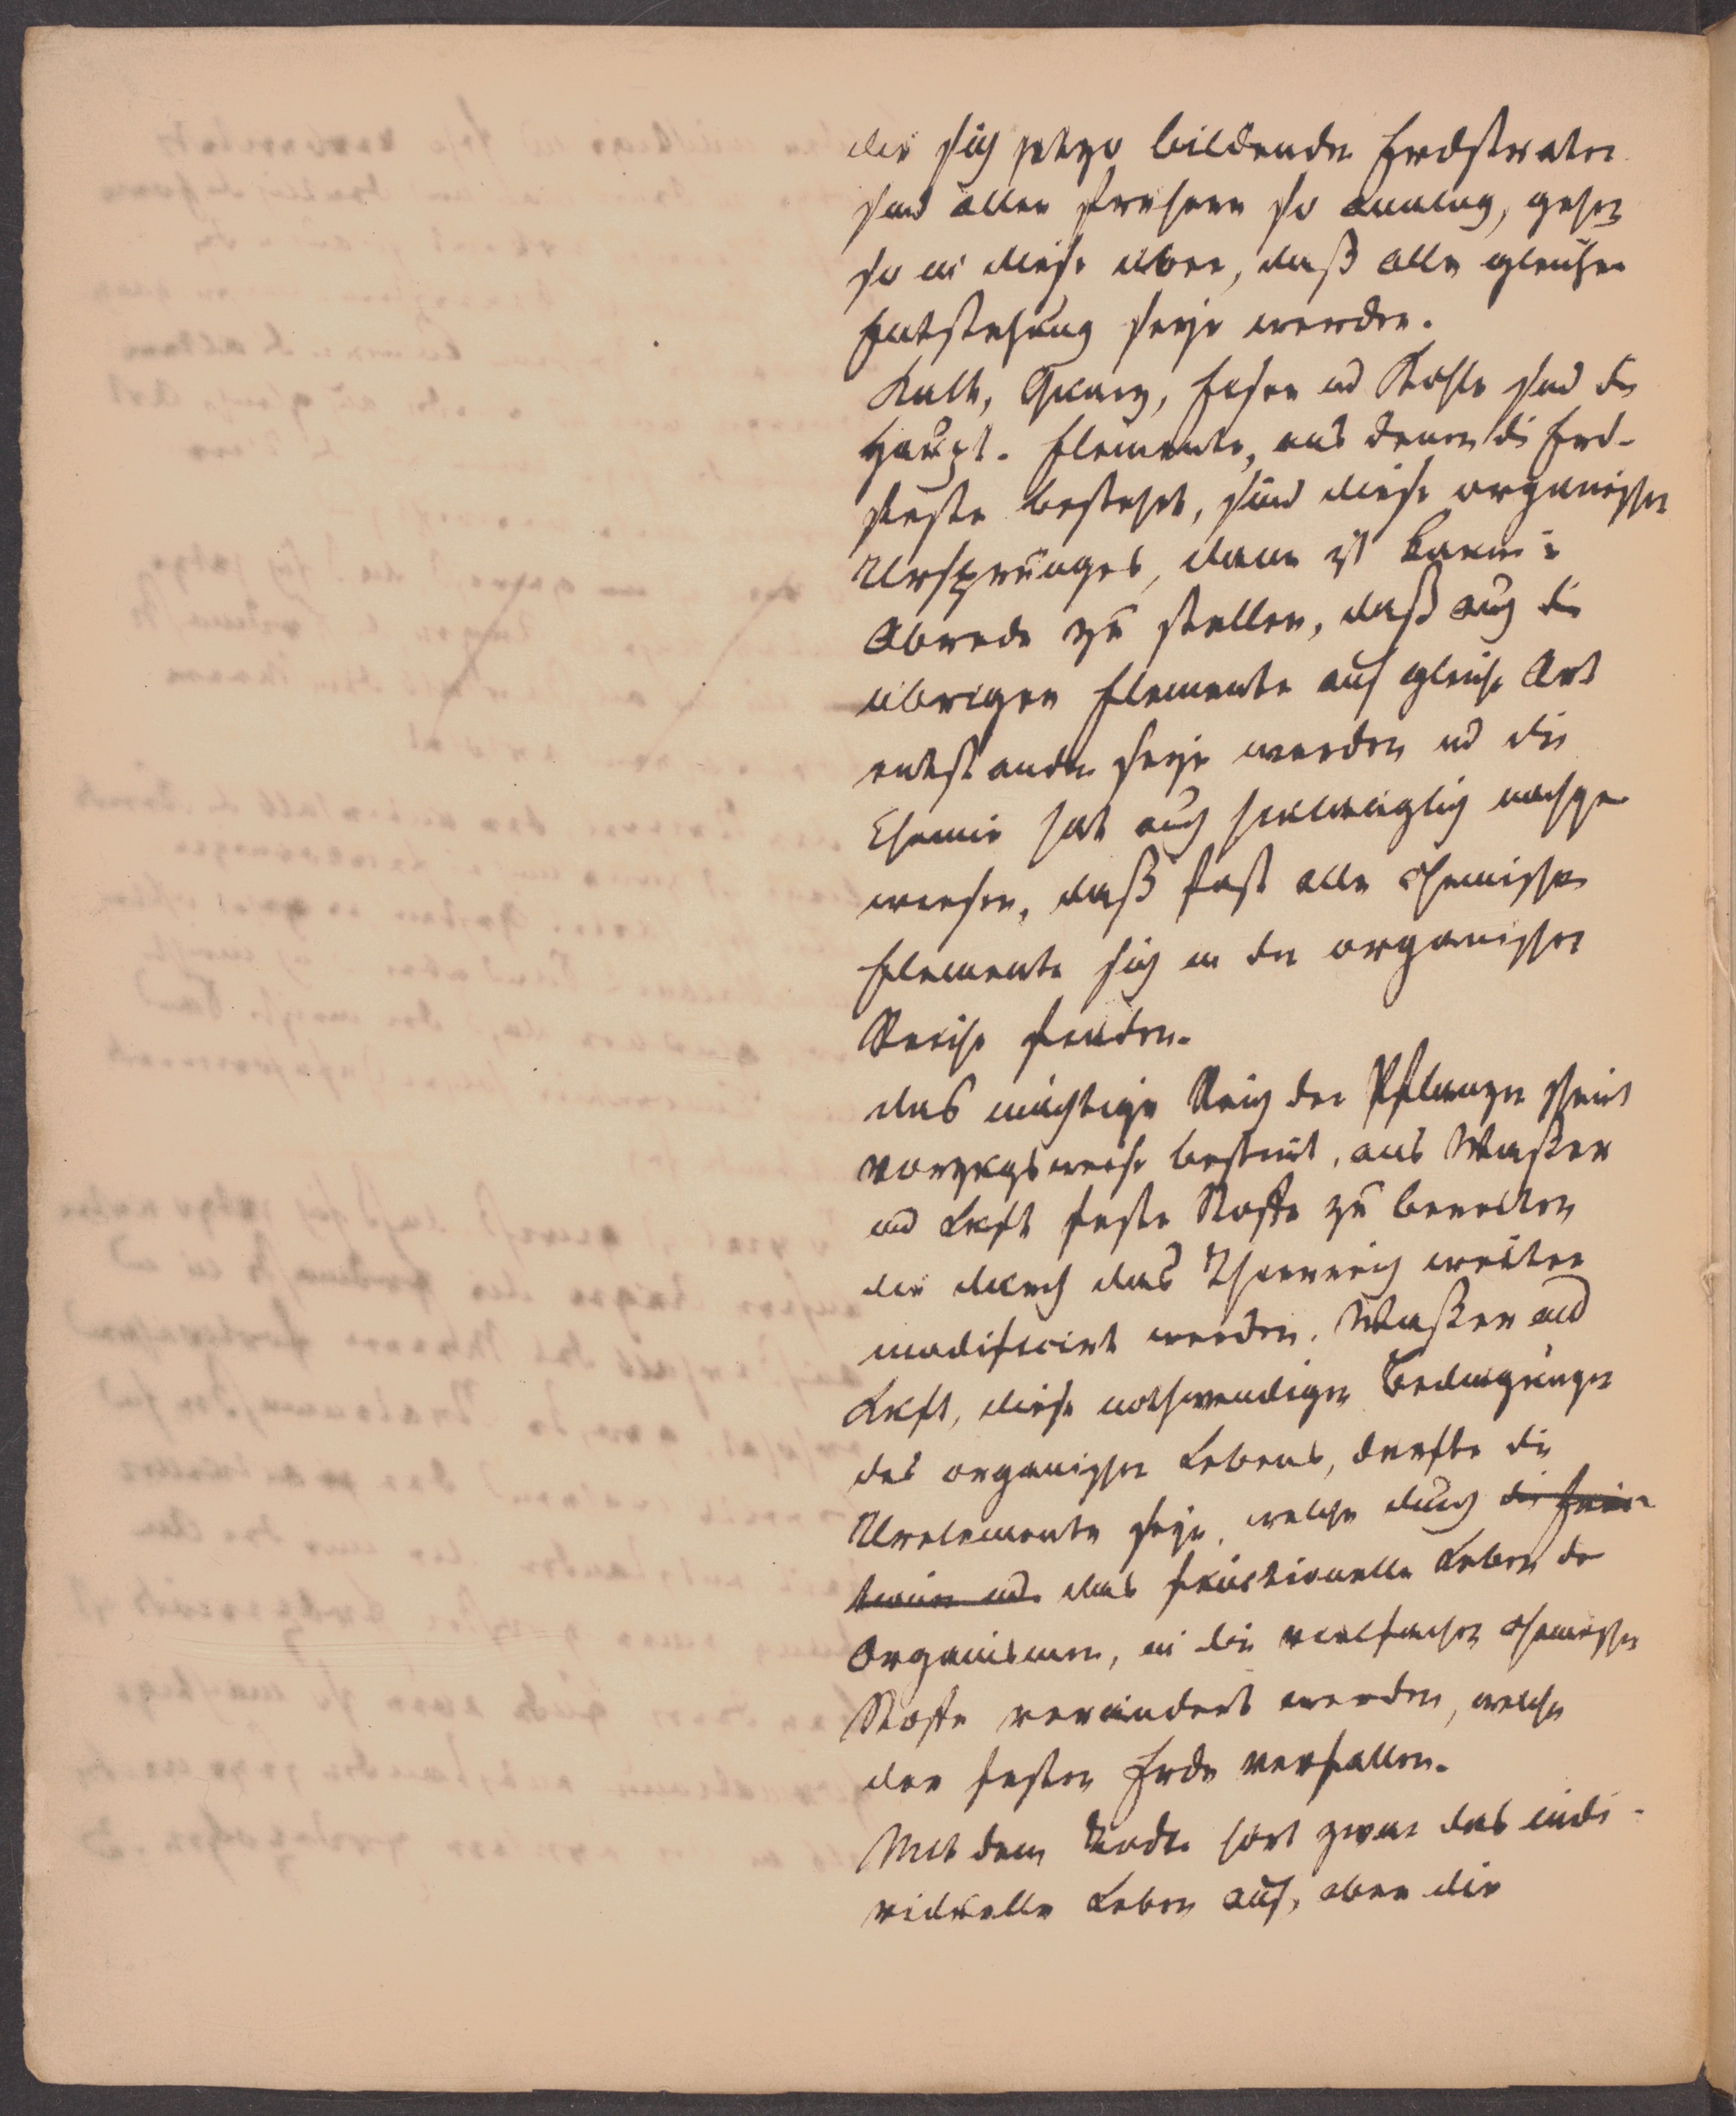 die sich jetzo bildenden Erdstraten
sind allen frühern so analog, gehen
so in diese über, daß alle gleicher
Entstehung seyn werden.
Kalk, Quarz, Eisen und Kohle sind die
Haupt-Elemente, aus denen die Erd-
feste besteht, sind diese organischen
Ursprunges, dann ist kaum in
Abrede zu stellen, daß auch die
übrigen Elemente auf gleiche Art
entstanden seyn werden und die
Chemie hat auch hinlänglich nachge
wiesen, daß fast alle chemischen
Elemente sich in der organischen
Reihe finden.
das mächtige Reich der Pflanzen scheint
vorzugsweise bestimt, aus Waßer
und Luft feste Stoffe zu bereiten
die durch das Thierreich weiter
modificirt werden. Waßer und
Luft, diese nothwendigen Bedingungen
des organischen Lebens, dürften die
Urelemente seyn, welche durch die
und das functionelle Leben der
Organismen, in die vielfachen chemischen
Stoffe verändert werden, welche
der festen Erde verfallen.
Mit dem Tode hört zwar das indi-
viduelle Leben auf, aber die